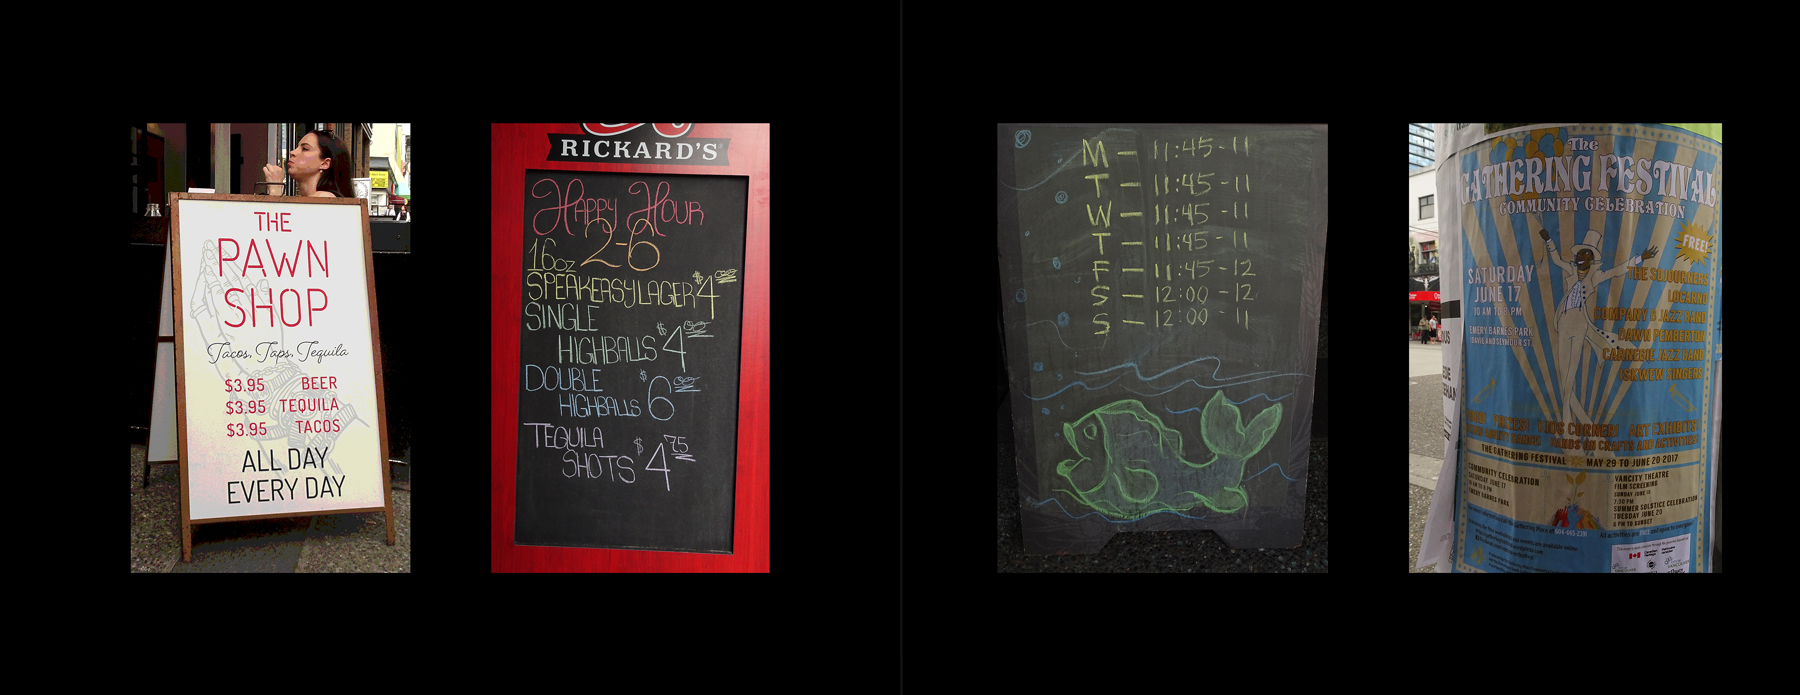 THE
PAWN
SHOP
Tacos, Taps, Tequila
$3.95 BEER
$3.95 TEQUILA
$3.95 TACOS
ALL DAY
EVERY DAY
RICKARD'S
HAPPY HOUR
2-6
16oz
SPEAKEASY LAGER $4
SINGLE
HIGHBALLS $4
DOUBLE
HIGHBALLS $6
TEQUILA
SHOTS $4.75
M - 11:45 - 11
T - 11:45 - 11
W - 11:45 - 11
T - 11:45 - 11
F - 11:45 - 12
S - 12:00 - 12
S - 12:00 - 11
The
GATHERING FESTIVAL
COMMUNITY CELEBRATION
FREE!
SATURDAY
JUNE 17
EMERY BARNES PARK
DAVIE AND SEYMOUR ST
THE SOJOURNERS
LOCARNO
COMPANY B JAZZ BAND
DAWN PEMBERTON
CARNEGIE JAZZ BAND
ISKWEW SINGERS
KIDS CORNER! ART EXHIBITS
HANDS ON CRAFTS AND ACTIVITIES
THE GATHERING FESTIVAL MAY 29 TO JUNE 20 2017
COMMUNITY CELEBRATION
SATURDAY JUNE 17
EMERY BARNES PARK
VANCITY THEATRE
FILM SCREENING
SUNDAY JUNE
7:30 PM
SUMMER SOLSTICE CELEBRATION
TUESDAY JUNE 20
6 PM TO SUNSET